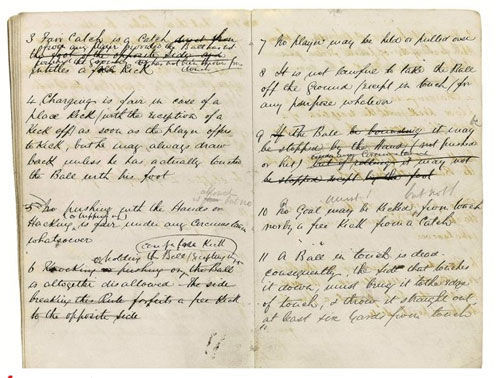 3 Fair Catch is a Catch direct from
entitles a free kick
4 Charging is fair in case of a
place kick (with the exception of a
kick off) as soon as the player offers
to kick, but he may always draw
back unless he has actually touched
the Ball with his foot.
5 No pushing with the Hands or
Hacking is fair under any circumstances
whatsoever
6 Knocking or pushing on the Ball
is altogether disallowed. The side
breaking this Rule forfeits a free kick
to the opposite side
7 No player may be held or pulled over
8 It is not lawful to take the Ball
off the Ground (except in touch) for
any purpose whatever
9 If the Ball be bounding it may
be stopped by the Hand (not pushed
or hit) but if rolling it may not
be stopped except by the foot
10 No Goal may be kicked from touch
nor by a free kick from a Catch
11 A Ball in touch is dead
consequently the side that touches
it down, must bring it to the edge
of touch, & throw it straight out
at least six yards from touch